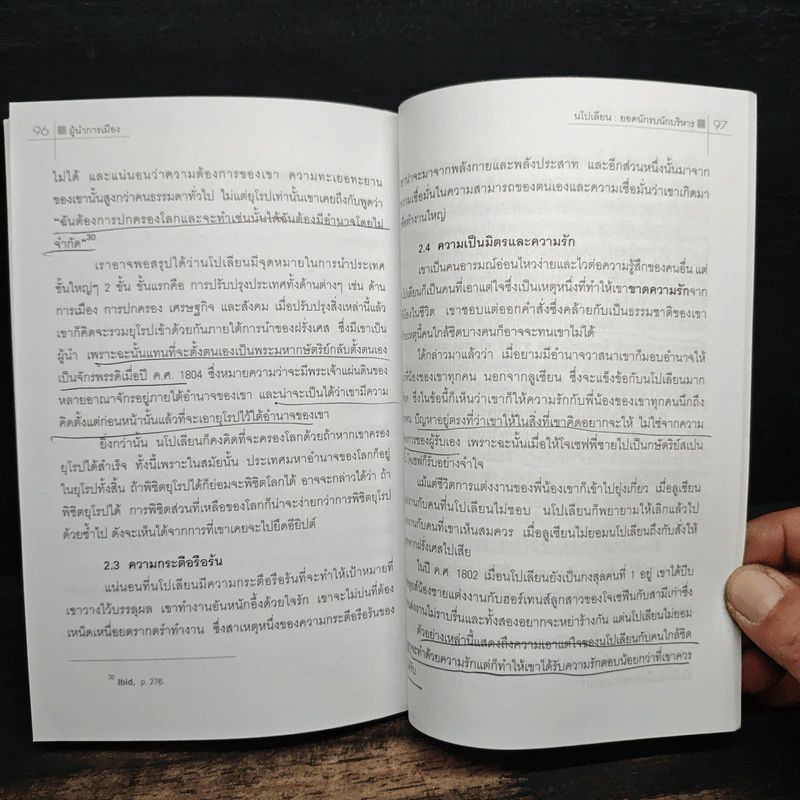 96 ผู้นำการเมือง
ไม่ได้ และแน่นอนว่าความต้องการของเขา ความทะเยอทะยาน
ของเขานั้นสูงกว่าคนธรรมดาทั่วไป ไม่แต่ยุโรปเท่านั้นเขาเคยถึงกับพูดว่า
"ฉันต้องการปกครองโลกและจะทำเช่นนั้นได้ฉันต้องมีอำนาจโดยไม่
จำกัด"30
เราอาจพอสรุปได้ว่านโปเลียนมีจุดหมายในการนำประเทศ
ขั้นใหญ่ๆ 2 ขั้น ขั้นแรกคือ การปรับปรุงประเทศทั้งด้านต่างๆ เช่น ด้าน
การเมือง การปกครอง เศรษฐกิจ และสังคม เมื่อปรับปรุงสิ่งเหล่านี้แล้ว
เขาก็คิดจะรวมยุโรปเข้าด้วยกันภายใต้การนำของฝรั่งเศส ซึ่งมีเขาเป็น
ผู้นำ เพราะฉะนั้นแทนที่จะตั้งตนเองเป็นพระมหากษัตริย์กลับตั้งตนเอง
เป็นจักรพรรดิเมื่อปี ค.ศ. 1804 ซึ่งหมายความว่าจะมีพระเจ้าแผ่นดินของ
หลายอาณาจักรอยู่ภายใต้อำนาจของเขา และน่าจะเป็นได้ว่าเขามีความ
คิดตั้งแต่ก่อนหน้านั้นแล้วที่จะเอายุโรปไว้ใต้อำนาจของเขา
ยิ่งกว่านั้น นโปเลียนก็คงคิดที่จะครองโลกด้วยถ้าหากเขาครอง
ยุโรปได้สำเร็จ ทั้งนี้เพราะในสมัยนั้น ประเทศมหาอำนาจของโลกก็อยู่
ในยุโรปทั้งสิ้น ถ้าพิชิตยุโรปได้ก็ย่อมจะพิชิตโลกได้ อาจจะกล่าวได้ว่า ถ้า
พิชิตยุโรปได้ การพิชิตส่วนที่เหลือของโลกก็น่าจะง่ายกว่าการพิชิตยุโรป
ด้วยซ้ำไป ดังจะเห็นได้จากการที่เขาเคยจะไปยึดอียิปต์
2.3 ความกระตือรือร้น
แน่นอนที่นโปเลียนมีความกระตือรือร้นที่จะทำให้เป้าหมายที่
เขาวางไว้บรรลุผล เขาทำงานอันหนักอึ้งด้วยใจรัก เขาจะไม่บ่นที่ต้อง
เหน็ดเหนื่อยตรากตรำทำงาน ซึ่งสาเหตุหนึ่งของความกระตือรือร้นของ
30 Ibid, p. 276.
นโปเลียน : ยอดนักรบนักบริหาร 97
เขาน่าจะมาจากพลังกายและพลังประสาท และอีกส่วนหนึ่งนั้นมาจาก
ความเชื่อมั่นในความสามารถของตนเองและความเชื่อมั่นว่าเขาเกิดมา
เพื่อทำงานใหญ่
2.4 ความเป็นมิตรและความรัก
เขาเป็นคนอารมณ์อ่อนไหวง่ายและไวต่อความรู้สึกของคนอื่น แต่
นโปเลียนก็เป็นคนที่เอาแต่ใจซึ่งเป็นเหตุหนึ่งที่ทำให้เขาขาดความรักจาก
พี่น้องในชีวิต เขาชอบแต่ออกคำสั่งซึ่งคล้ายกับเป็นธรรมชาติของเขา
เหตุนี้คนใกล้ชิดบางคนก็อาจจะทนเขาไม่ได้
ได้กล่าวมาแล้วว่า เมื่อยามมีอำนาจวาสนาเขาก็มอบอำนาจให้
พี่น้องของเขาทุกคน นอกจากลูเซียน ซึ่งจะแข็งข้อกับนโปเลียนมาก
สุด ซึ่งในข้อนี้ก็เห็นว่าเขาก็ให้ความรักกับพี่น้องของเขาทุกคนนึกถึง
คน ปัญหาอยู่ตรงที่ว่าเขาให้ในสิ่งที่เขาคิดอยากจะให้ ไม่ใช่จากความ
ต้องการของผู้รับเอง เพราะฉะนั้นเมื่อให้โจเซฟพี่ชายไปเป็นกษัตริย์สเปน
โจเซฟก็รับอย่างจำใจ
แม้แต่ชีวิตการแต่งงานของพี่น้องเขาก็เข้าไปยุ่งเกี่ยว เมื่อลูเซียน
งานกับคนที่นโปเลียนไม่ชอบ นโปเลียนก็พยายามให้เลิกแล้วไป
งานกับคนที่เขาเห็นสมควร เมื่อลูเซียนไม่ยอมนโปเลียนถึงกับสั่งให้
จากฝรั่งเศสไปเสีย
ในปี ค.ศ. 1802 เมื่อนโปเลียนยังเป็นกงสุลคนที่ 1 อยู่ เขาได้บีบ
น้องชายแต่งงานกับฮอร์เทนส์ลูกสาวของโจเซฟีนกับสามีเก่าซึ่ง
แต่งงานไม่ราบรื่นและทั้งสองอยากจะหย่าร้างกัน แต่นโปเลียนไม่ยอม
ตัวอย่างเหล่านี้แสดงถึงความเอาแต่ใจของนโปเลียนกับคนใกล้ชิด
จะทำด้วยความรักแต่ก็ทำให้เขาได้รับความรักตอบน้อยกว่าที่เขาควร